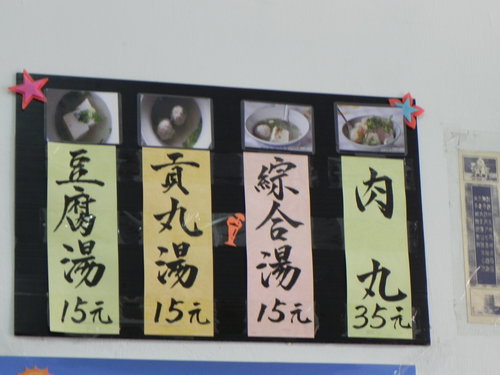 豆腐湯
15元
貢丸湯
15元
綜合湯
15元
肉丸
35元